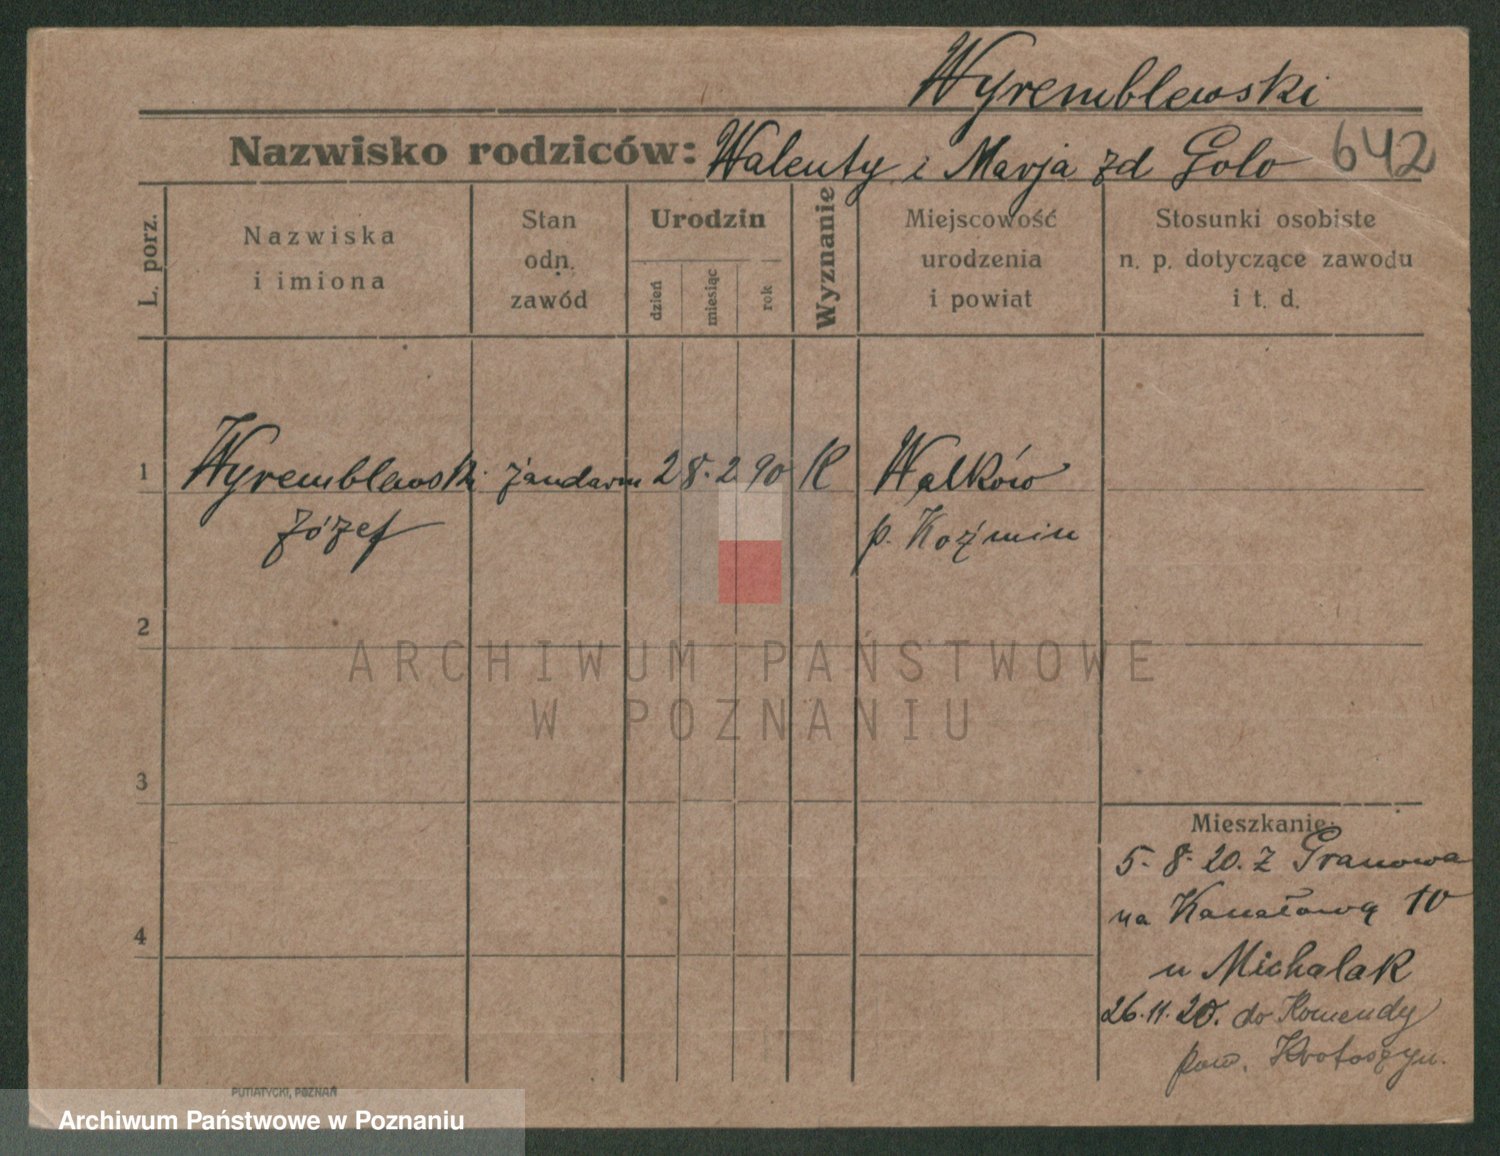 Wyremblewski
Nazwisko rodziców: Walenty i Marja zd Golo 642
L. porz.
Nazwiska
i imiona
Stan
odn.
zawód
Urodzin
dzień
miesiąc
rok
Wyznanie
Miejscowość
urodzenia
i powiat
Stosunki osobiste
n. p. dotyczące zawodu
i t. d.
1 Wyremblewski żandarm 28. 2 90 K Walków
Józef p. Koźmin
2
3
4
Mieszkanie:
5. 8. 20. z Granowa
na Kanałową 10
u Michalak
26. 11. 20. do Komendy
pow. Krotoszyn.
PUTIATYCKI, POZNAŃ
ARCHIWUM PAŃSTWOWE
W POZNANIU
Archiwum Państwowe w Poznaniu